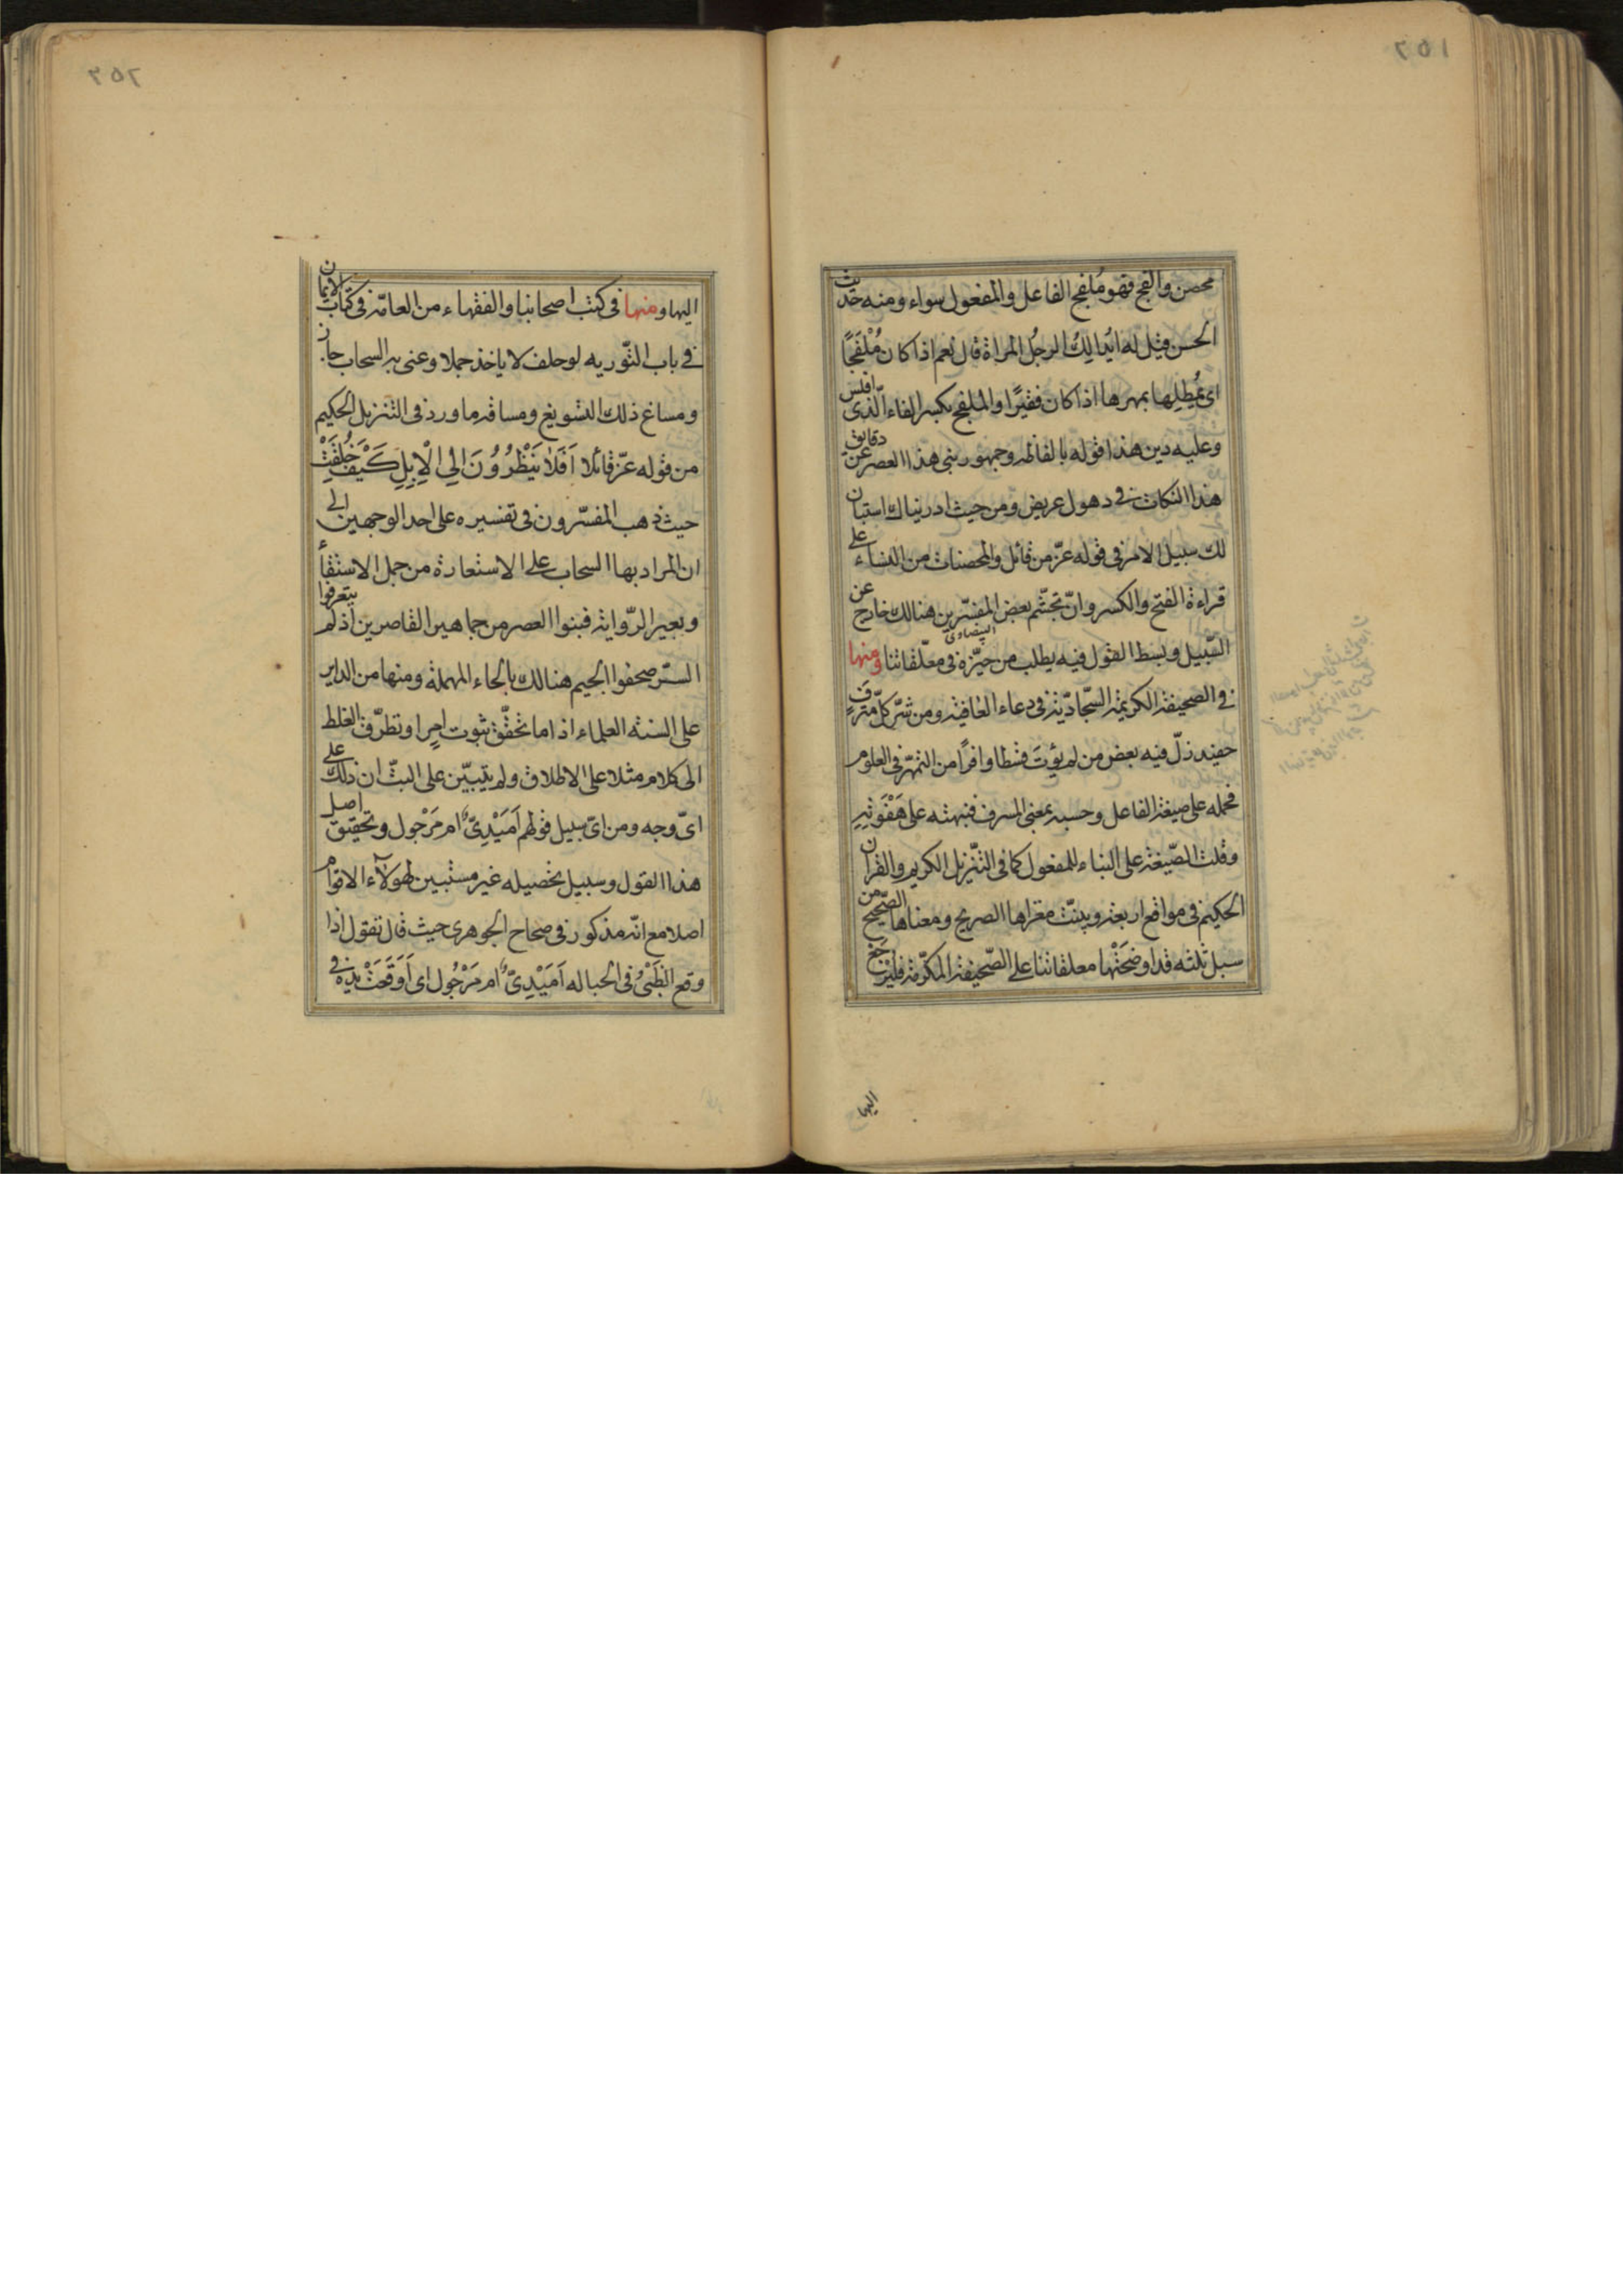 محصن والفج فهو مُلفج الفاعل والمفعول سواء ومنه حديث
الحسن قيل له ايُدالِكُ الرجلُ المراة قال نعم اذا كان مُلْفَجًا
اى يُمطِلها بمهرها اذا كان فقيرًا والملفج بكسر الفاء الّذى افلس
وعليه دين هذا قوله بالفاظه وجمهور بنى هذا العصر عن دقايق
هذا النكات فى دهول عريض ومن حيث ادريناك استبان
لك سبيل الامر فى قوله عزّ من قائل والمحصنات من النساء على
قراءة الفتح والكسر وانّ تجشّم بعض المفسّرين هنالك خارج عن
البيضاوى
السّبيل وبسط القول فيه يطلب من حيّزه فى معلّقاتنا ومنها
فى الصحيفة الكريمة السّجاديّة فى دعاء العافية ومن شرّ كلّ مترفٍ
حفيد زلّ فيه بعض من لم يؤتَ قسطا وافرًا من التمهّر فى العلوم
فحمله على صيغة الفاعل وحسبه بمعنى المسرف فنبهته على هَفْوَتِهِ
وقلت الصّيغة على البناء للمفعول كما فى التنّزيل الكريم والقران
الحكيم فى مواقع اربعة وبينّت مغزاها الصريح ومعناها الصّحيح من
سبل ثلثه قد اوضحَتْها معلقاتنا على الصّحيفة المكرّمة فليرجع
اليها
اليها ومنها فى كتب اصحابنا والفقهاء من العامّة فى كتاب الايمان
فى باب التّوريه لو حلف لا ياخذ جملا وعنى به السحاب جاز
ومساغ ذلك التسويغ ومساقه ما ورد فى التنزيل الحكيم
من قوله عزّ قائلا اَفَلا يَنْظُرُوُنَ اِلى الْاِبِلِ كَيْفَ خُلِقَتْ
حيث ذهب المفسّرون فى تفسيره على احد الوجهين الى
ان المراد بها السحاب على الاستعارة من جمل الاستقاء
وبعير الرّواية فبنوا العصر من جماهير القاصرين اذ لم يتعرفوا
السّر صحفوا الجيم هنالك بالحاء المهملة ومنها من الداير
على السنه العلماء اذا ما تحقّق ثبوت امرٍ او تطرّق الغلط
الى كلام مثلا على الاطلاق ولم يتبيّن على البتّ ان ذلك على
اىّ وجه ومن اىّ سبيل قولهم اَمَيْدِىّ ام مَرْجول وتحقيق اصل
هذا القول وسبيل تحصيله غير مستبين لهولآء الاقوام
اصلا مع انّه مذكور فى صحاح الجوهرى حيث قال تقول اذا
وقع الظَبْىُ فى الحباله اَمَيْدِىّ ام مَرْجُول اى اَوَقَعَتْ يده فى